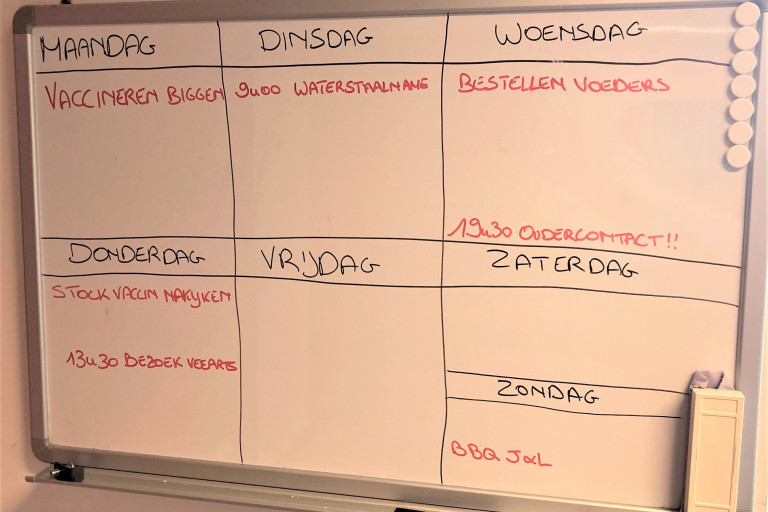 MAANDAG
VACCINEREN BIGGEN
DINSDAG
9u00 WATERSTAALNAME
WOENSDAG
BESTELLEN VOEDERS
19u30 OUDERCONTACT!!
DONDERDAG
STOCK VACCIN NAKIJKEN
13u30 BEZOEK VEEARTS
VRIJDAG
ZATERDAG
ZONDAG
BBQ J&L